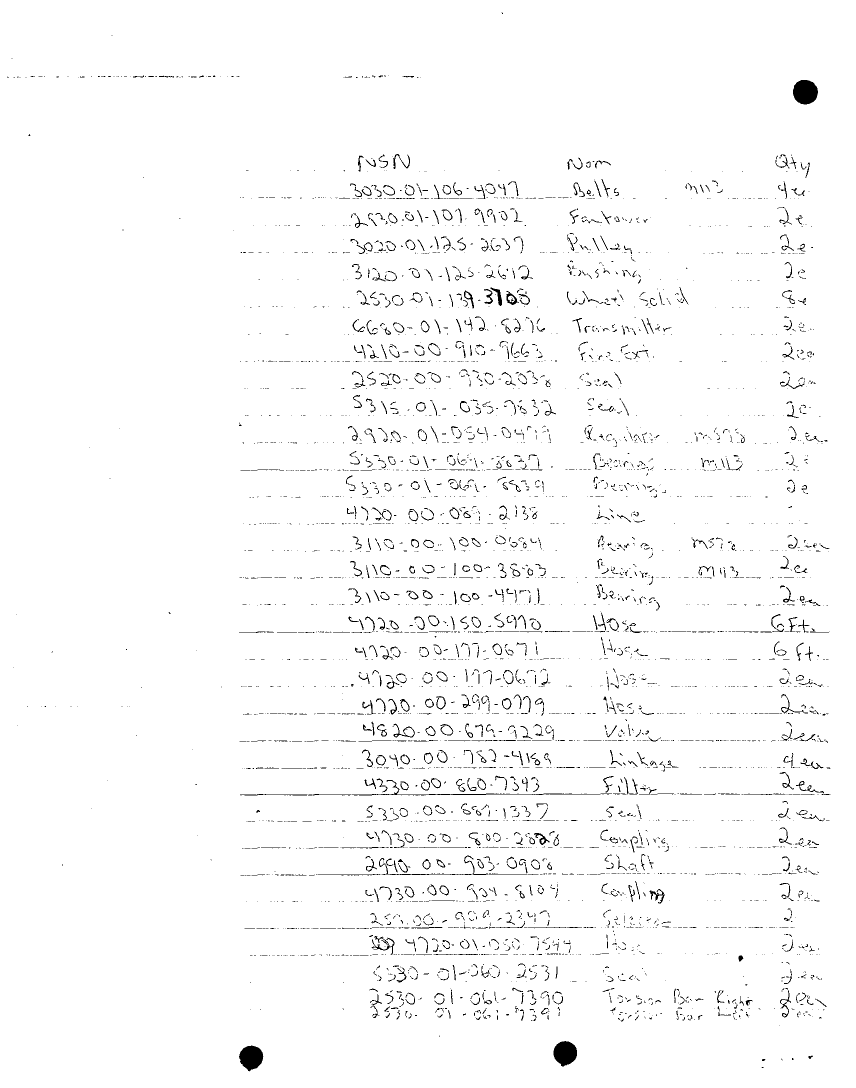 NSN Nom Qty
3030-01-106-4047 Belts M113 4e
2930-01-107-9902 Fantower 2e
3020-01-125-2637 Pulley 2e
3120-01-125-2612 Bushing 2e
2530-01-139-3708 Wheel Solid 8e
6680-01-142-8276 Transmitter 2e
4210-00-910-9663 Fire Ext. 2ea
2520-00-930-2038 Seal 2ea
5315-01-035-7832 Seal 2e
2920-01-054-0479 Regulator M578 2ea
5330-01-069-8837 Bearings M113 2e
5330-01-069-8839 Bearings 2e
4720-00-089-2138 Line
3110-00-100-0684 Bearing M578 2ea
3110-00-100-3883 Bearing M113 2ea
3110-00-100-4471 Bearing 2ea
4720-00-150-5970 Hose 6Ft.
4720-00-177-0671 Hose 6 ft.
4720-00-177-0672 Hose 2ea
4720-00-299-0779 Hose 2ea
4820-00-679-9229 Valve 2ea
3040-00-782-4189 Linkage 4ea
4330-00-860-7393 Filter 2ea
5330-00-889-1337 Seal 2ea
4730-00-800-2828 Coupling 2ea
2990-00-903-0908 Shaft 2ea
4730-00-904-8104 Coupling 2ea
-909-2347 Selector 2
4720-01-050-7544 Hose 2ea
5330-01-060-2531 Seal 2ea
2530-01-061-7390 Torsion Bar Right 2ea
2530-01-061-7391 Torsion Bar Left 2ea